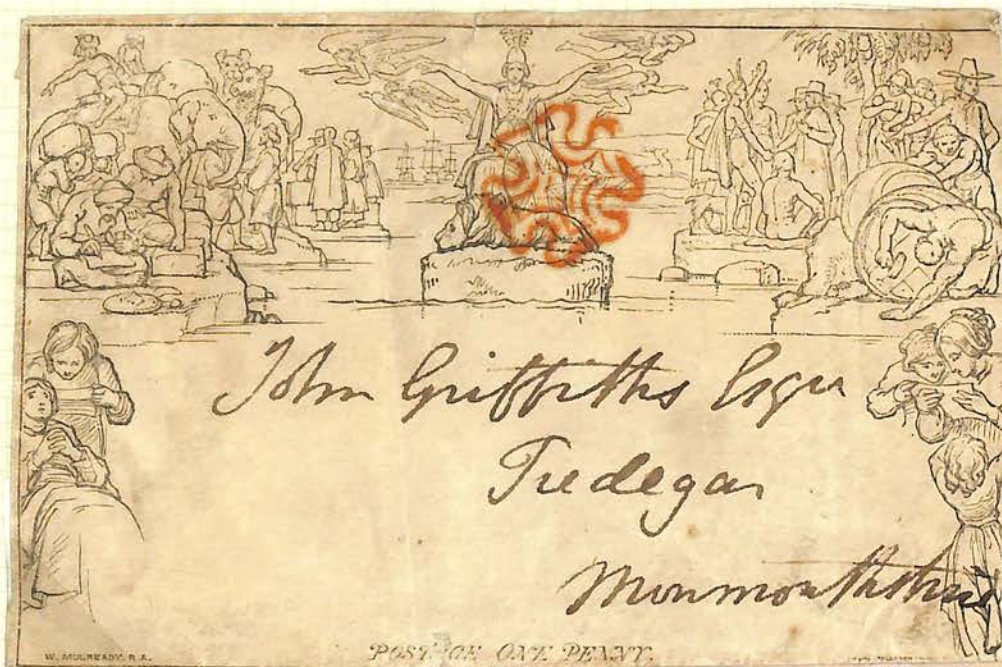 John Griffiths Esqre
Tredegar
Monmouthshire
W. MULREADY. R.A.
POSTAGE ONE PENNY.